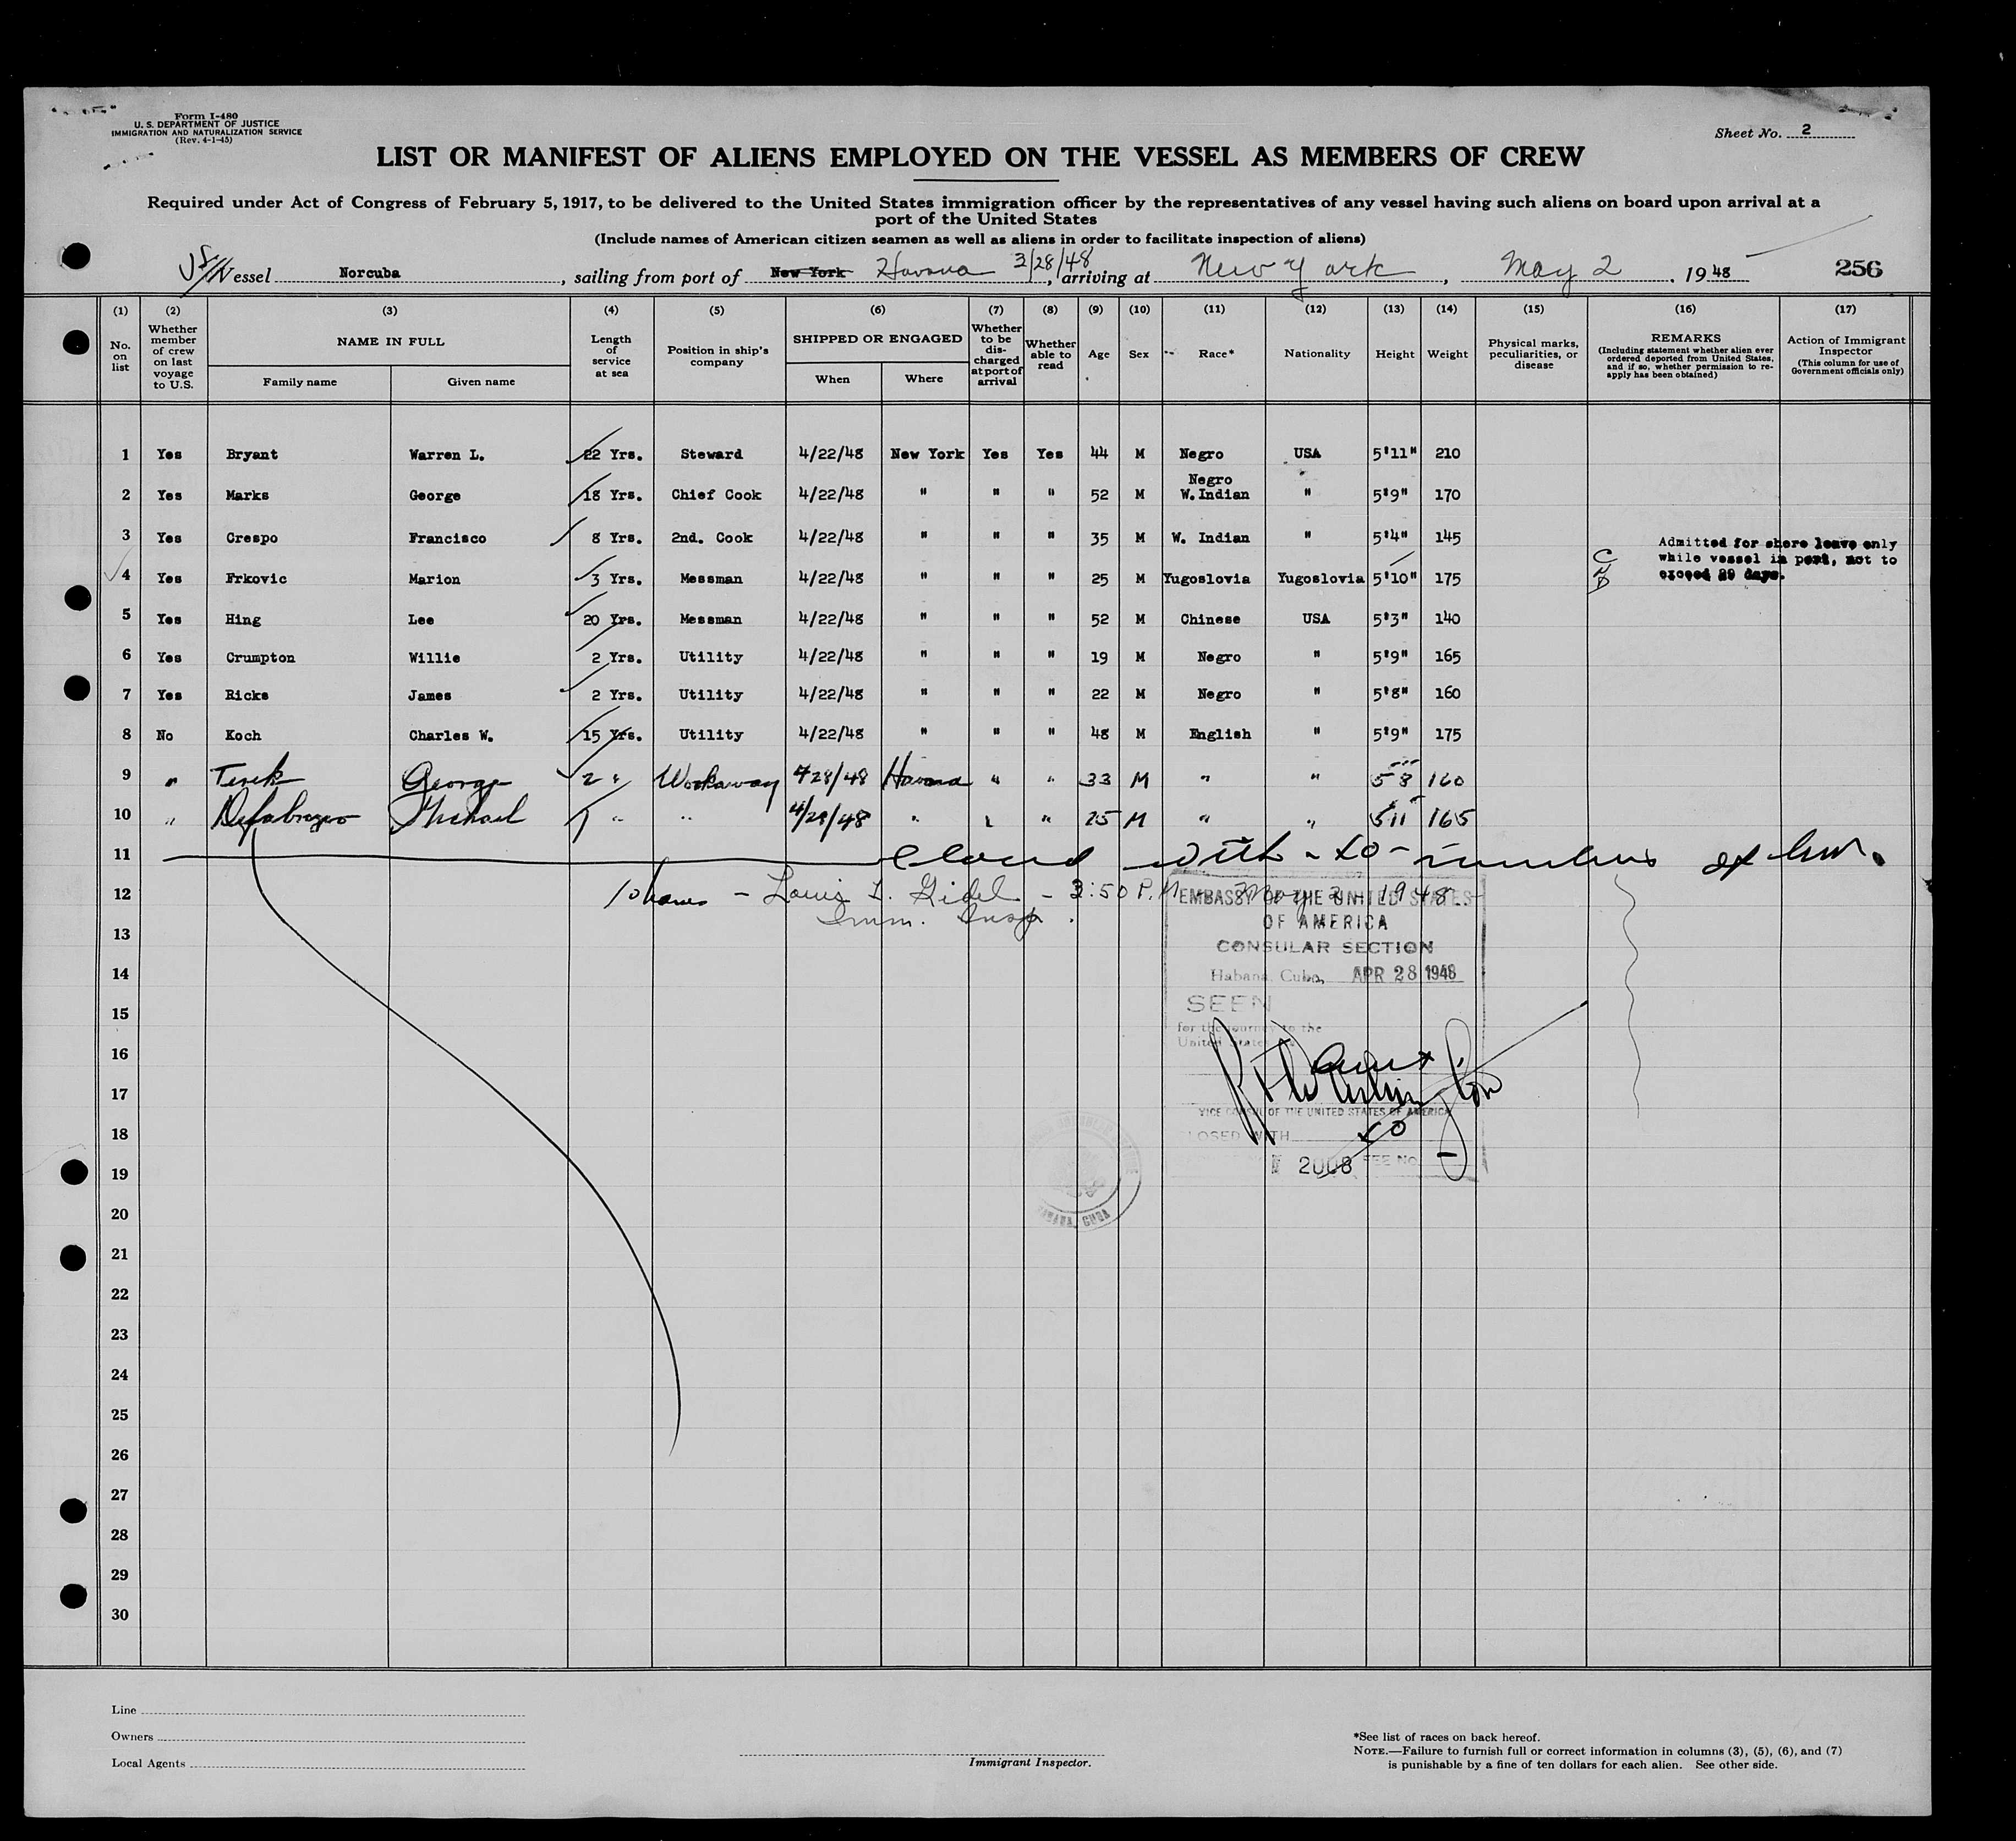 Form I-480
U. S. DEPARTMENT OF JUSTICE
IMMIGRATION AND NATURALIZATION SERVICE
(Rev. 4-1-45)
Sheet No. 2
LIST OR MANIFEST OF ALIENS EMPLOYED ON THE VESSEL AS MEMBERS OF CREW
Required under Act of Congress of February 5, 1917, to be delivered to the United States immigration officer by the representatives of any vessel having such aliens on board upon arrival at a
port of the United States
(Include names of American citizen seamen as well as aliens in order to facilitate inspection of aliens)
Vessel Norcuba, sailing from port of New York Havana 3/28/48, arriving at New York, May 2, 1948 256
(1) (2) (3) (4) (5) (6) (7) (8) (9) (10) (11) (12) (13) (14) (15) (16) (17)
No. on list
Whether member of crew on last voyage to U.S.
NAME IN FULL
Family name Given name
Length of service at sea
Position in ship's company
SHIPPED OR ENGAGED
When Where
Whether to be discharged at port of arrival
Whether able to read
Age
Sex
Race*
Nationality
Height
Weight
Physical marks, peculiarities, or disease
REMARKS
(Including statement whether alien ever ordered deported from United States, and if so, whether permission to re-apply has been obtained)
Action of Immigrant Inspector
(This column for use of Government officials only)
1 Yes Bryant Warren L. 22 Yrs. Steward 4/22/48 New York Yes Yes 44 M Negro USA 5'11" 210
2 Yes Marks George 18 Yrs. Chief Cook 4/22/48 " " " 52 M Negro W.Indian " 5'9" 170
3 Yes Crespo Francisco 8 Yrs. 2nd. Cook 4/22/48 " " " 35 M W. Indian " 5'4" 145
4 Yes Frkovic Marion 3 Yrs. Messman 4/22/48 " " " 25 M Yugoslovia Yugoslovia 5'10" 175
Admitted for shore leave only
while vessel in port, not to
exceed 29 days.
5 Yes Hing Lee 20 Yrs. Messman 4/22/48 " " " 52 M Chinese USA 5'3" 140
6 Yes Crumpton Willie 2 Yrs. Utility 4/22/48 " " " 19 M Negro " 5'9" 165
7 Yes Ricks James 2 Yrs. Utility 4/22/48 " " " 22 M Negro " 5'8" 160
8 No Koch Charles W. 15 Yrs. Utility 4/22/48 " " " 48 M English " 5'9" 175
9 " George 2 " Workaway 4/28/48 Havana " " 33 M " " 5'8" 160
10 " Michael 1 " " 4/28/48 " " " 25 M " " 5'11" 165
11 Closed with - 10 - members of crew.
12 - Louis I. - 3:50 P.M. May 2 - 1948 -
Imm. Insp.
13
EMBASSY OF THE UNITED STATES
OF AMERICA
CONSULAR SECTION
14
Habana, Cuba, APR 28 1948
SEEN
15
for the journey to the
United States
16
17
VICE CONSUL OF THE UNITED STATES OF AMERICA
18
CLOSED WITH 10
19
2008 FEE NO. -
20
HABANA, CUBA
21
22
23
24
25
26
27
28
29
30
Line
Owners
Local Agents
Immigrant Inspector.
*See list of races on back hereof.
NOTE.—Failure to furnish full or correct information in columns (3), (5), (6), and (7)
is punishable by a fine of ten dollars for each alien. See other side.